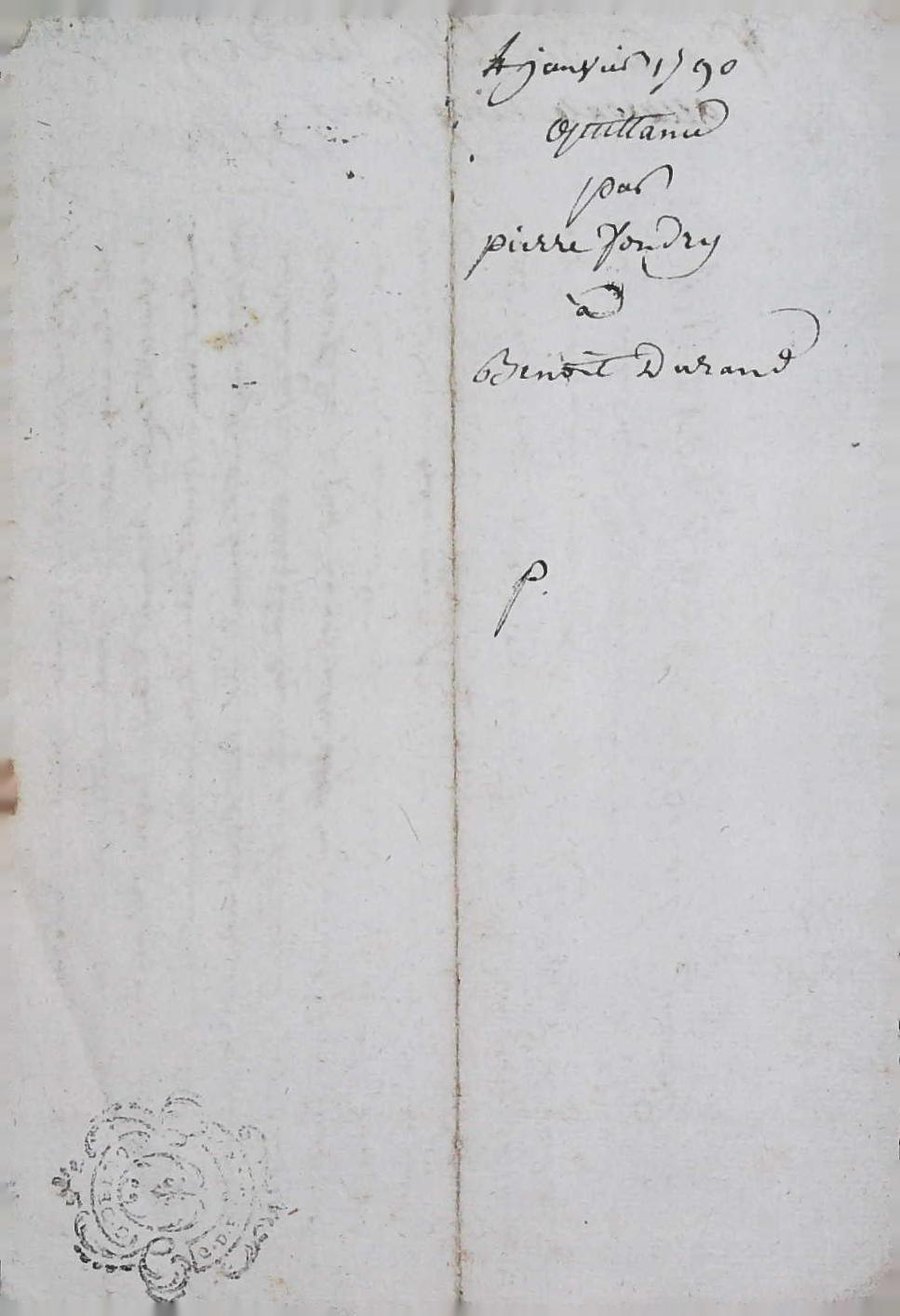 4 janvier 1790
Quittance
par
pierre Vondry
à
Benoit Durand
P.